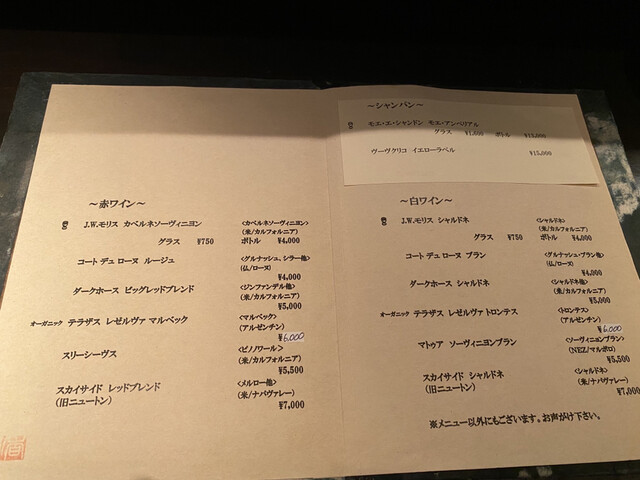 ～赤ワイン～
J.W.モリス カベルネソーヴィニヨン <カベルネソーヴィニヨン>
(米/カルフォルニア)
グラス ¥750 ボトル ¥4,000
コート デュ ローヌ ルージュ <グルナッシュ、シラー他>
(仏/ローヌ)
¥4,000
ダークホース ビッグレッドブレンド <ジンファンデル他>
(米/カルフォルニア)
¥5,000
オーガニック テラザス レゼルヴァ マルベック <マルベック>
(アルゼンチン)
¥6,000
スリーシーヴス <ピノノワール>
(米/カルフォルニア)
¥5,500
スカイサイド レッドブレンド <メルロー他>
(旧ニュートン) (米/ナパヴァレー)
¥7,000
～シャンパン～
モエ・エ・シャンドン モエ・アンペリアル
グラス ボトル
ヴーヴクリコ イエローラベル
¥15,000
～白ワイン～
J.W.モリス シャルドネ <シャルドネ>
(米/カルフォルニア)
グラス ¥750 ボトル ¥4,000
コート デュ ローヌ ブラン <グルナッシュ・ブラン他>
(仏/ローヌ)
¥4,000
ダークホース シャルドネ <シャルドネ他>
(米/カルフォルニア)
¥5,000
オーガニック テラザス レゼルヴァ トロンテス <トロンテス>
(アルゼンチン)
¥6,000
マトゥア ソーヴィニヨンブラン <ソーヴィニヨンブラン>
(NEZ/マルボロ)
¥5,500
スカイサイド シャルドネ <シャルドネ>
(旧ニュートン) (米/ナパヴァレー)
¥7,000
※メニュー以外にもございます。お声がけ下さい。